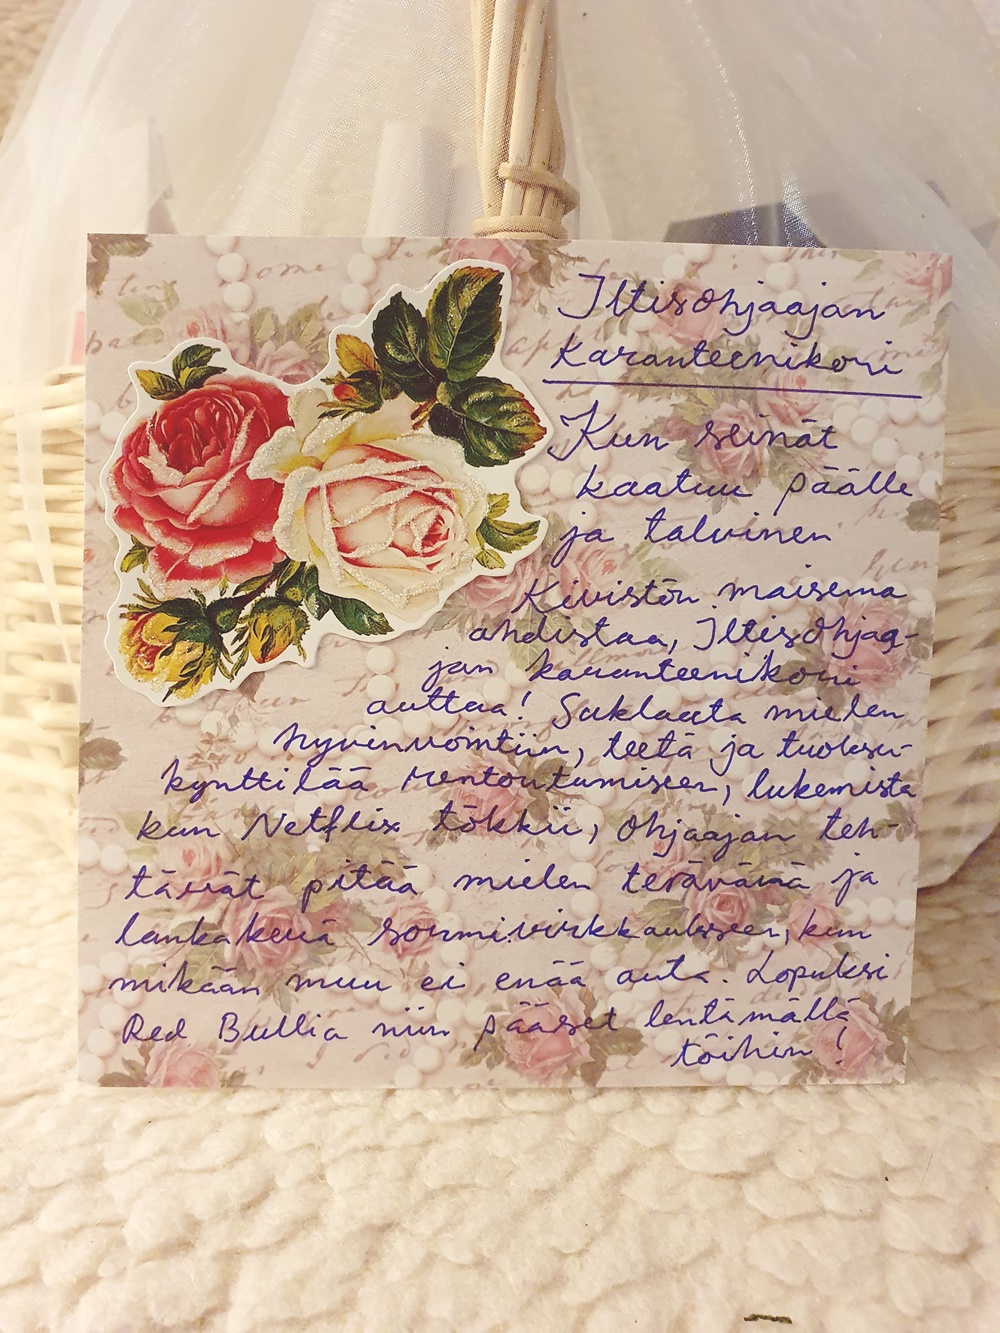 Iltisohjaajan
Karanteenikori
Kun seinät
kaatuu päälle
ja talvinen
Kivistön maisema
ahdistaa, Iltisohjaa-
jan karanteenikori
auttaa! Suklaata mielen
hyvinvointiin, teetä ja tuoksu-
kynttilää rentoutumiseen, lukemista
kun Netflix tökkii, ohjaajan teh-
tävät pitää mielen terävänä ja
lankakerä sormivirkkaukseen, kun
mikään muu ei enää auta. Lopuksi
Red Bullia niin pääset lentämällä
töihin!